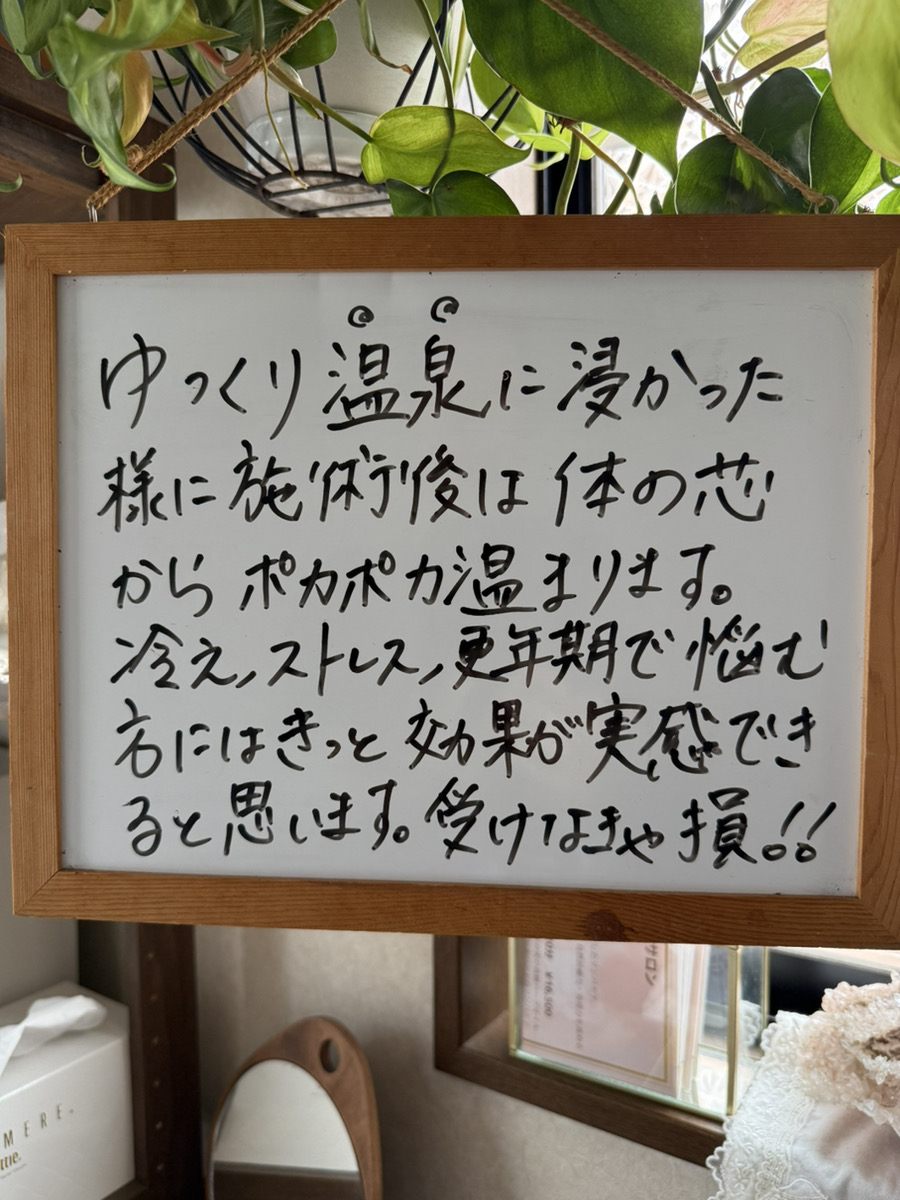 ゆっくり温泉に浸かった
様に施術後は体の芯
からポカポカ温まります。
冷え,ストレス,更年期で悩む
方にはきっと効果が実感でき
ると思います。受けなきゃ損!!
サロン
MERE.
ttie.